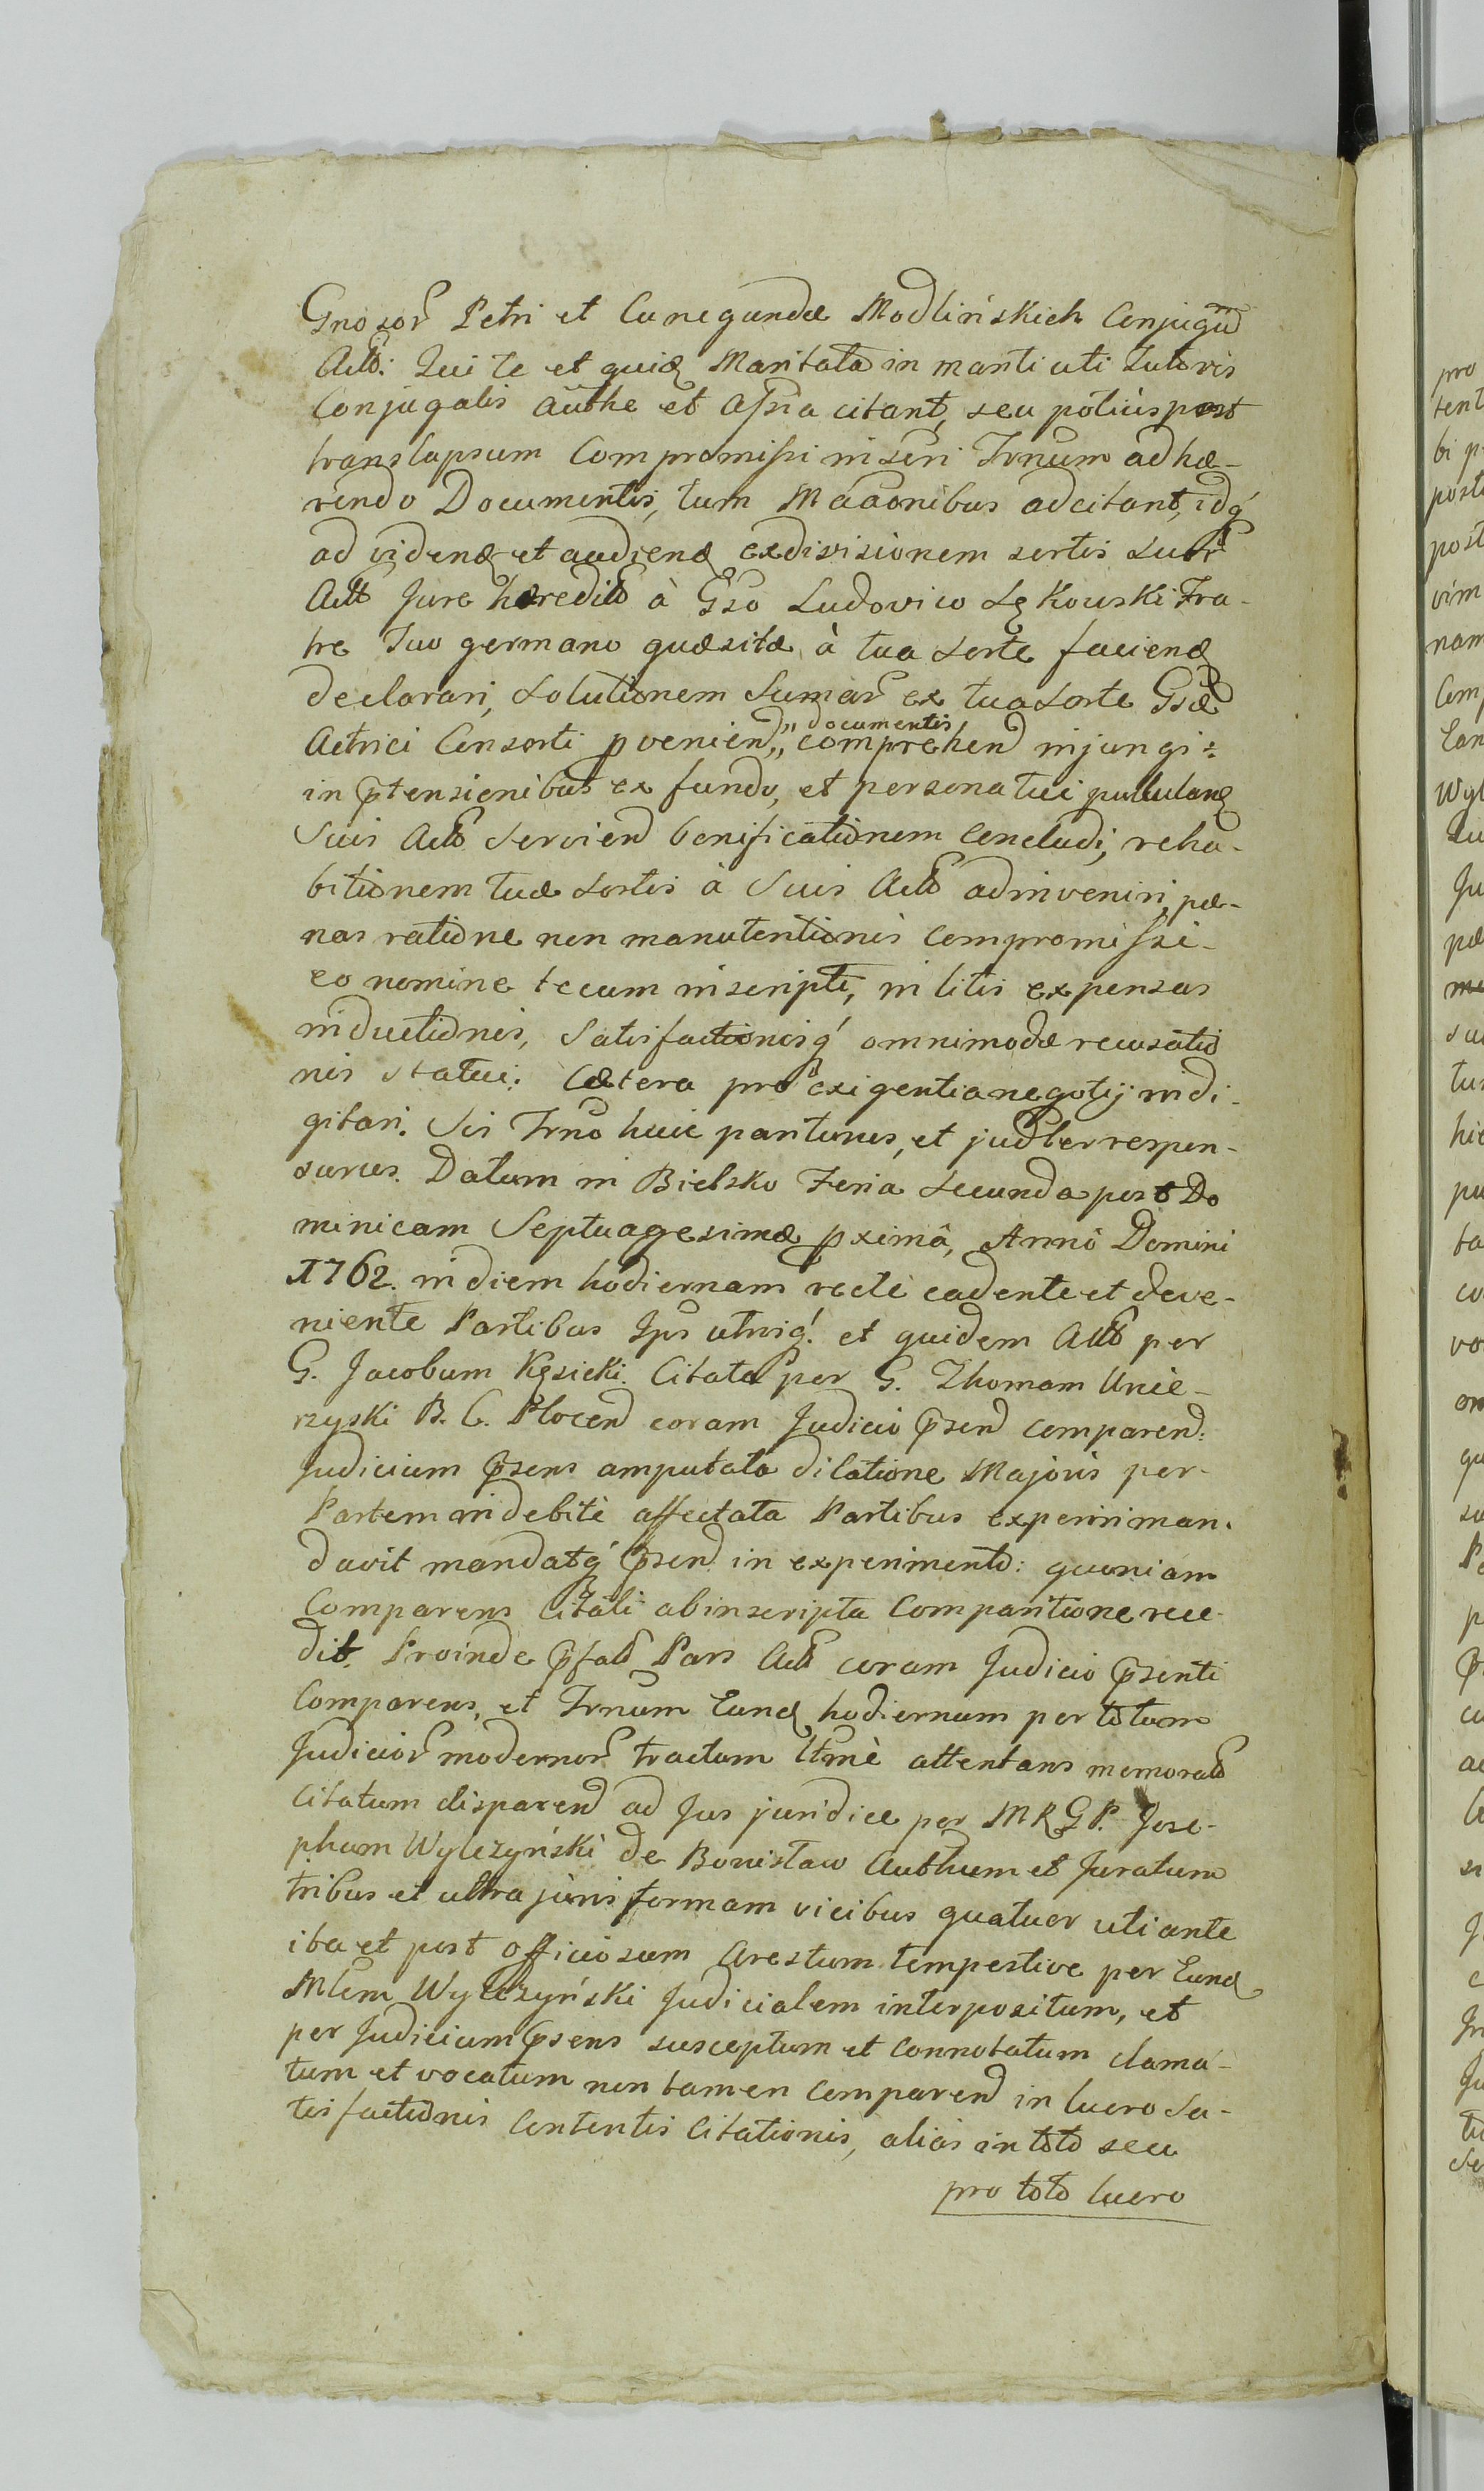 Gnosor Petri et Cunegundæ Modlińskich Conjugū
Actō. Qui te et quidē Maritata in mariti uti tutoris
Conjugalis aūthe et assīa citant, seu potiùs post
translapsum Compromissi inseri Trnum adhæ-
rendo Documentis, tum Māaonibus adcitant, idq́
ad videnđ et audienđ exdivisionem sortis suor
Actō Jure hæredito à Gso Ludovico Łękowski Fra-
tre Tuo germano quæsitæ à tua Sorte faciend
declarari, Solutionem Sumār ex tua Sorte Gsæ
Actrici Consorti pveniend,, documentis comprehend injungi:
in ptensionibus ex fundo, et persona tui pullulanđ
Suis Actō Serviend bonificationem Concludi, reha-
bitionem tuæ Sortis à Suis Actō adinveniri, pæ-
nas ratione non manutentionis Compromissi-
eo nomine tecum inscripti, in litis expensas
inductionis, Satisfactionisq́ omnimodæ recusatio
nis statui. Cætera pro exigentia negotij indi-
gitari. Sis Trno huic pariturus, et judler respon-
surus. Datum in Bielsko Feria Secunda post Do
minicam Septuagesimæ pximâ, Anno Domini
1762. in diem hodiernam rectè cadente et deve-
niente Partibus Ips utrisq́. et quidem Actō per
G. Jacobum Kęsicki. Citatā per G. Thomam Unie-
rzyski B. C. Plocend coram Judicio psend comparend:
Judicium psens amputata dilatione Majoris per-
Partem indebitè affectata Partibus experiri man-
davit mandatq́ psend in experimento: quoniam
Comparens Citāli ab inscripta Comparitione rece-
dit, Proinde pfatā Pars Actā coram Judicio psenti
Comparens, et Trnum Eund hodiernum per totum
Judicior modernor tractum Ltmè attentans memoratō
Citatum disparend ad Jus juridice per MRGP. Jose-
phum Wylezyński de Bonisław Authum et Juratum
tribus et ultra juris formam vicibus quatuor uti ante
ita et post officiosum Arestum tempestive per Eund
Mlem Wylezyński Judicialem interpositum, et
per Judicium psens susceptum et Connotatum clama-
tum et vocatum non tamen Comparend in lucro Sa-
tisfactionis Contentis Citationis, alias in toto seu
pro toto lucro